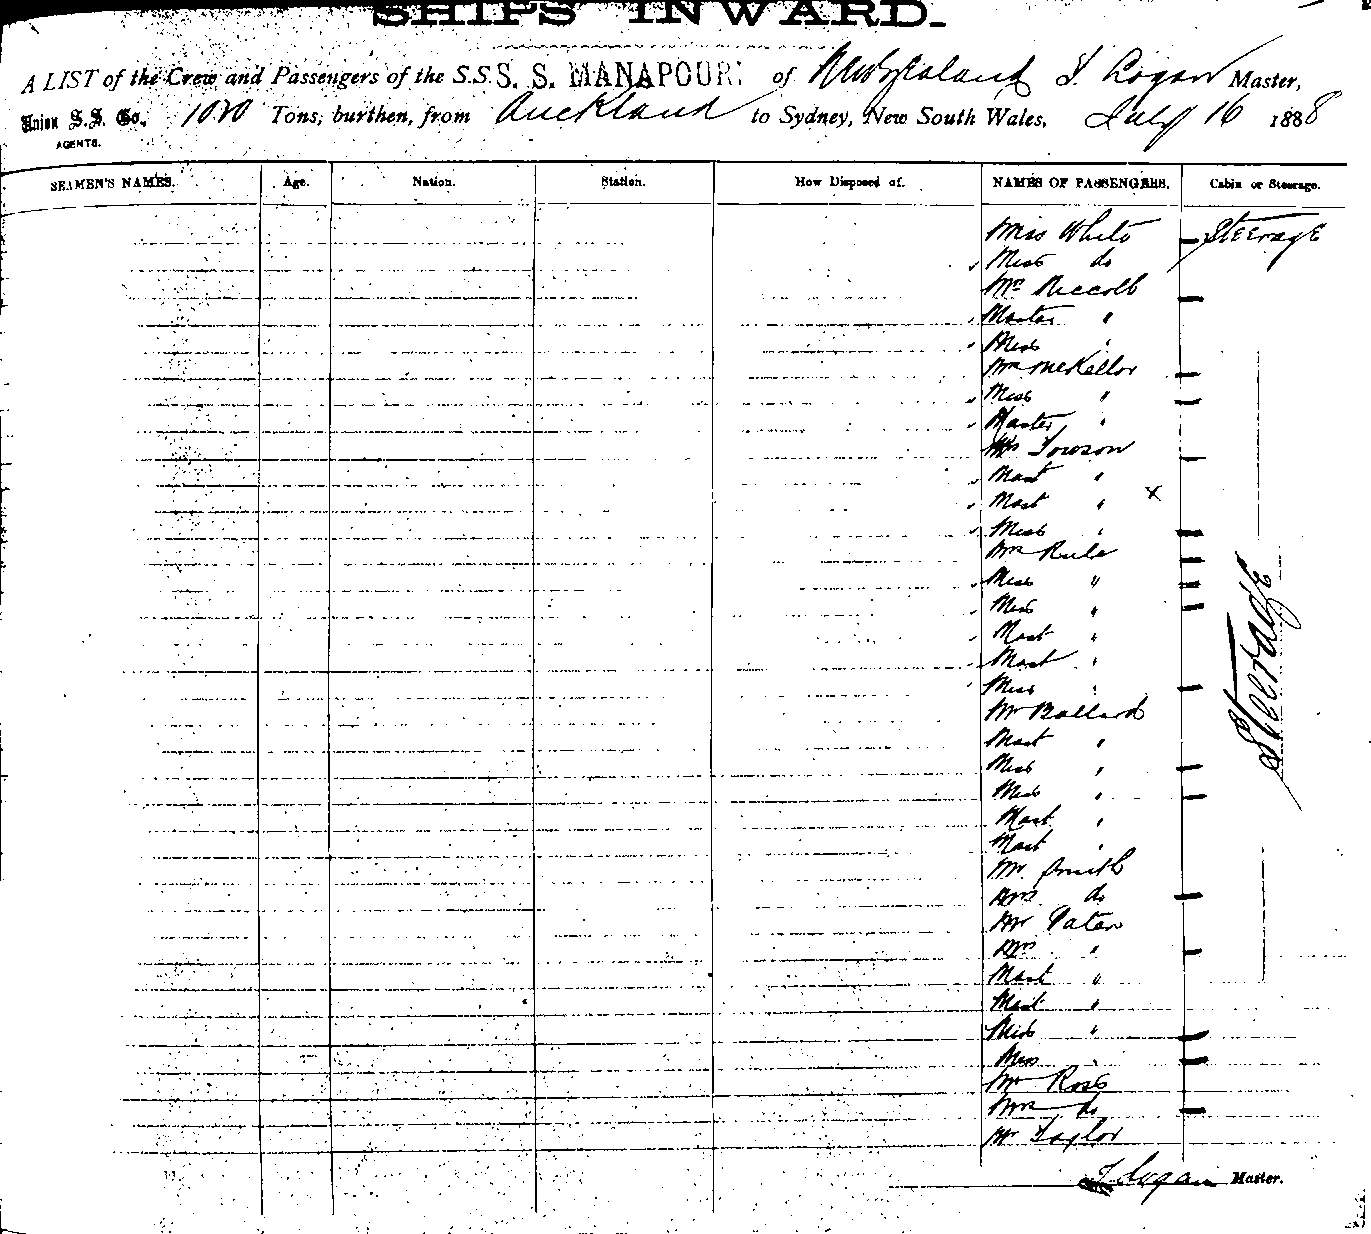 SHIPS INWARD.
A LIST of the Crew and Passengers of the S.S. S. S. MANAPOURI of New Zealand T. Logan Master,
Union S.S. Co. 1020 Tons, burthen, from Auckland to Sydney, New South Wales, July 16 1888
AGENTS.
SEAMEN'S NAMES. Age. Nation. Station. How Disposed of. NAMES OF PASSENGERS. Cabin or Steerage.
Miss White Steerage
Miss do
Mr
Master "
Miss "
Mrs McKellor
Miss "
Master "
Mrs Towson
Mast "
Mast " x
Miss "
Mrs Rule
Miss "
Miss "
Mast "
Mast "
Miss "
Mr Ballard
Mast "
Miss "
Miss "
Mast "
Mast "
Mr. Smith
Mrs. do
Mr Pater
Mrs "
Mast "
Mast "
Miss "
Miss "
Mr Ross
Mrs do
Mr Taylor
Steerage
T Logan Master.